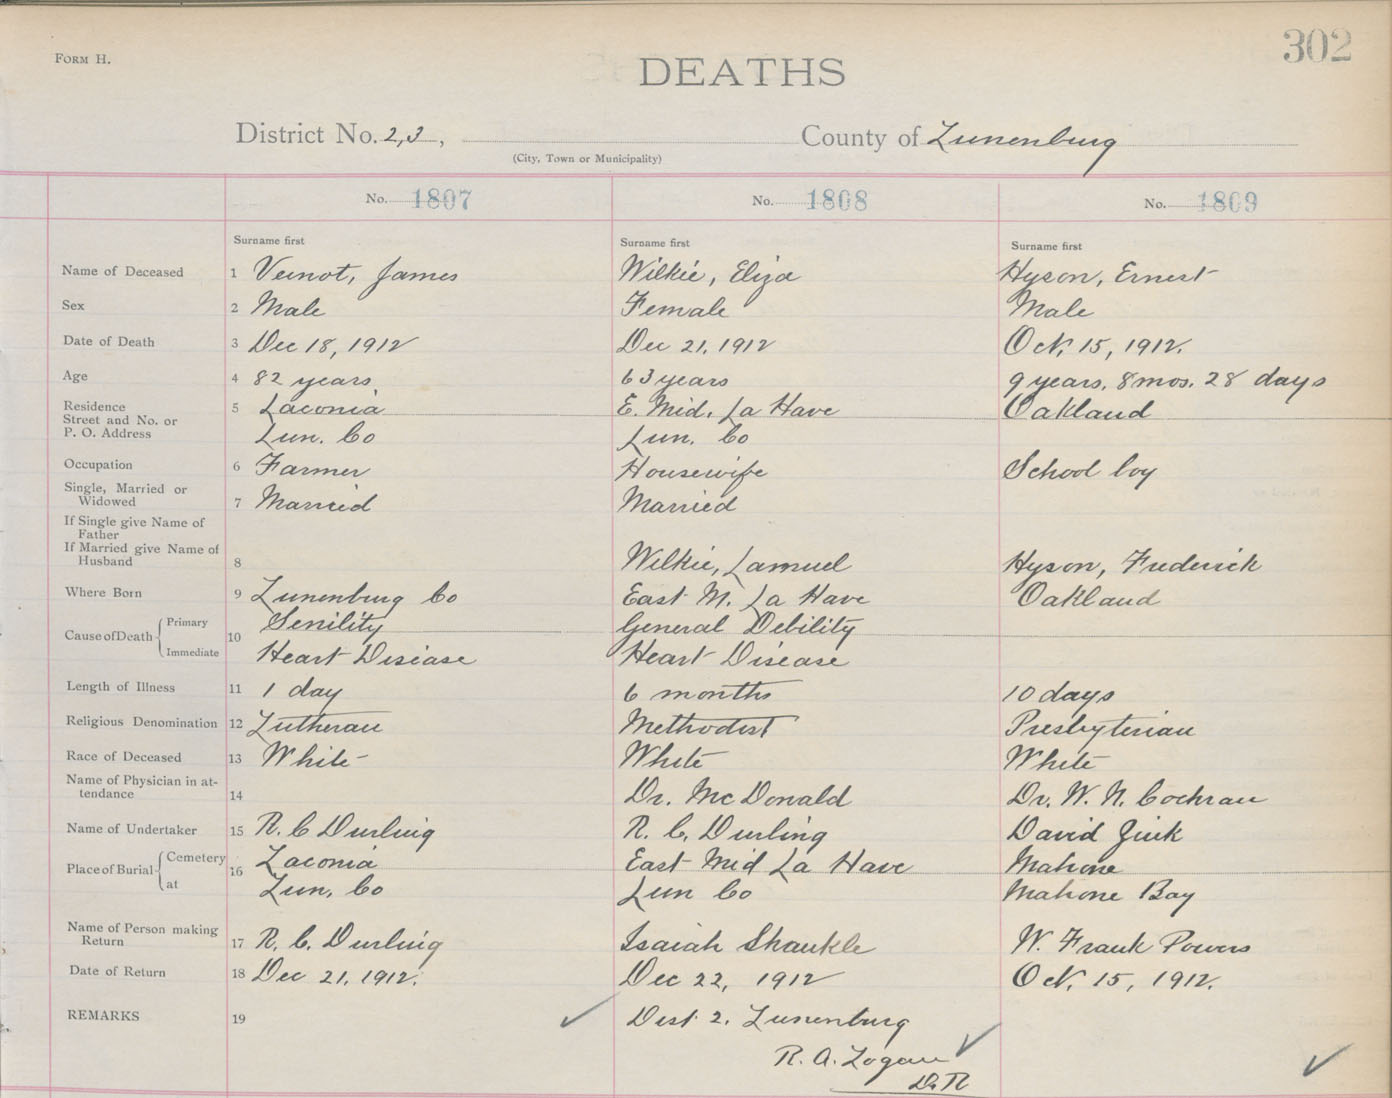 302
FORM H.
DEATHS
District No. 2,3, County of Lunenburg
(City, Town or Municipality)
No. 1807 No. 1808 No. 1809
Surname first Surname first Surname first
Name of Deceased 1 Veinot, James Wilkie, Eliza Hyson, Ernest
Sex 2 Male Female Male
Date of Death 3 Dec 18, 1912 Dec 21, 1912 Oct, 15, 1912.
Age 4 82 years. 63 years 9 years. 8 mos. 28 days
Residence 5 Laconia E. Mid. La Have Oakland
Street and No. or
P. O. Address Lun. Co Lun. Co
Occupation 6 Farmer Housewife School boy
Single, Married or
Widowed 7 Married Married
If Single give Name of
Father
If Married give Name of
Husband 8 Wilkie, Lamuel Hyson, Frederick
Where Born 9 Lunenburg Co East M. La Have Oakland
Cause of Death Primary 10 Senility General Debility
Immediate Heart Disease Heart Disease
Length of Illness 11 1 day 6 months 10 days
Religious Denomination 12 Lutheran Methodist Presbyterian
Race of Deceased 13 White White White
Name of Physician in at-
tendance 14 Dr. McDonald Dr. W. N. Cochran
Name of Undertaker 15 R. C Durling R. C. Durling David Zink
Place of Burial Cemetery 16 Laconia East Mid La Have Mahone
at Lun. Co Lun Co Mahone Bay
Name of Person making
Return 17 R. C. Durling Isaiah Shankle W. Frank Powers
Date of Return 18 Dec 21, 1912. Dec 22, 1912 Oct, 15, 1912.
REMARKS 19 Dist 2. Lunenburg
R. A. Logan
D. R